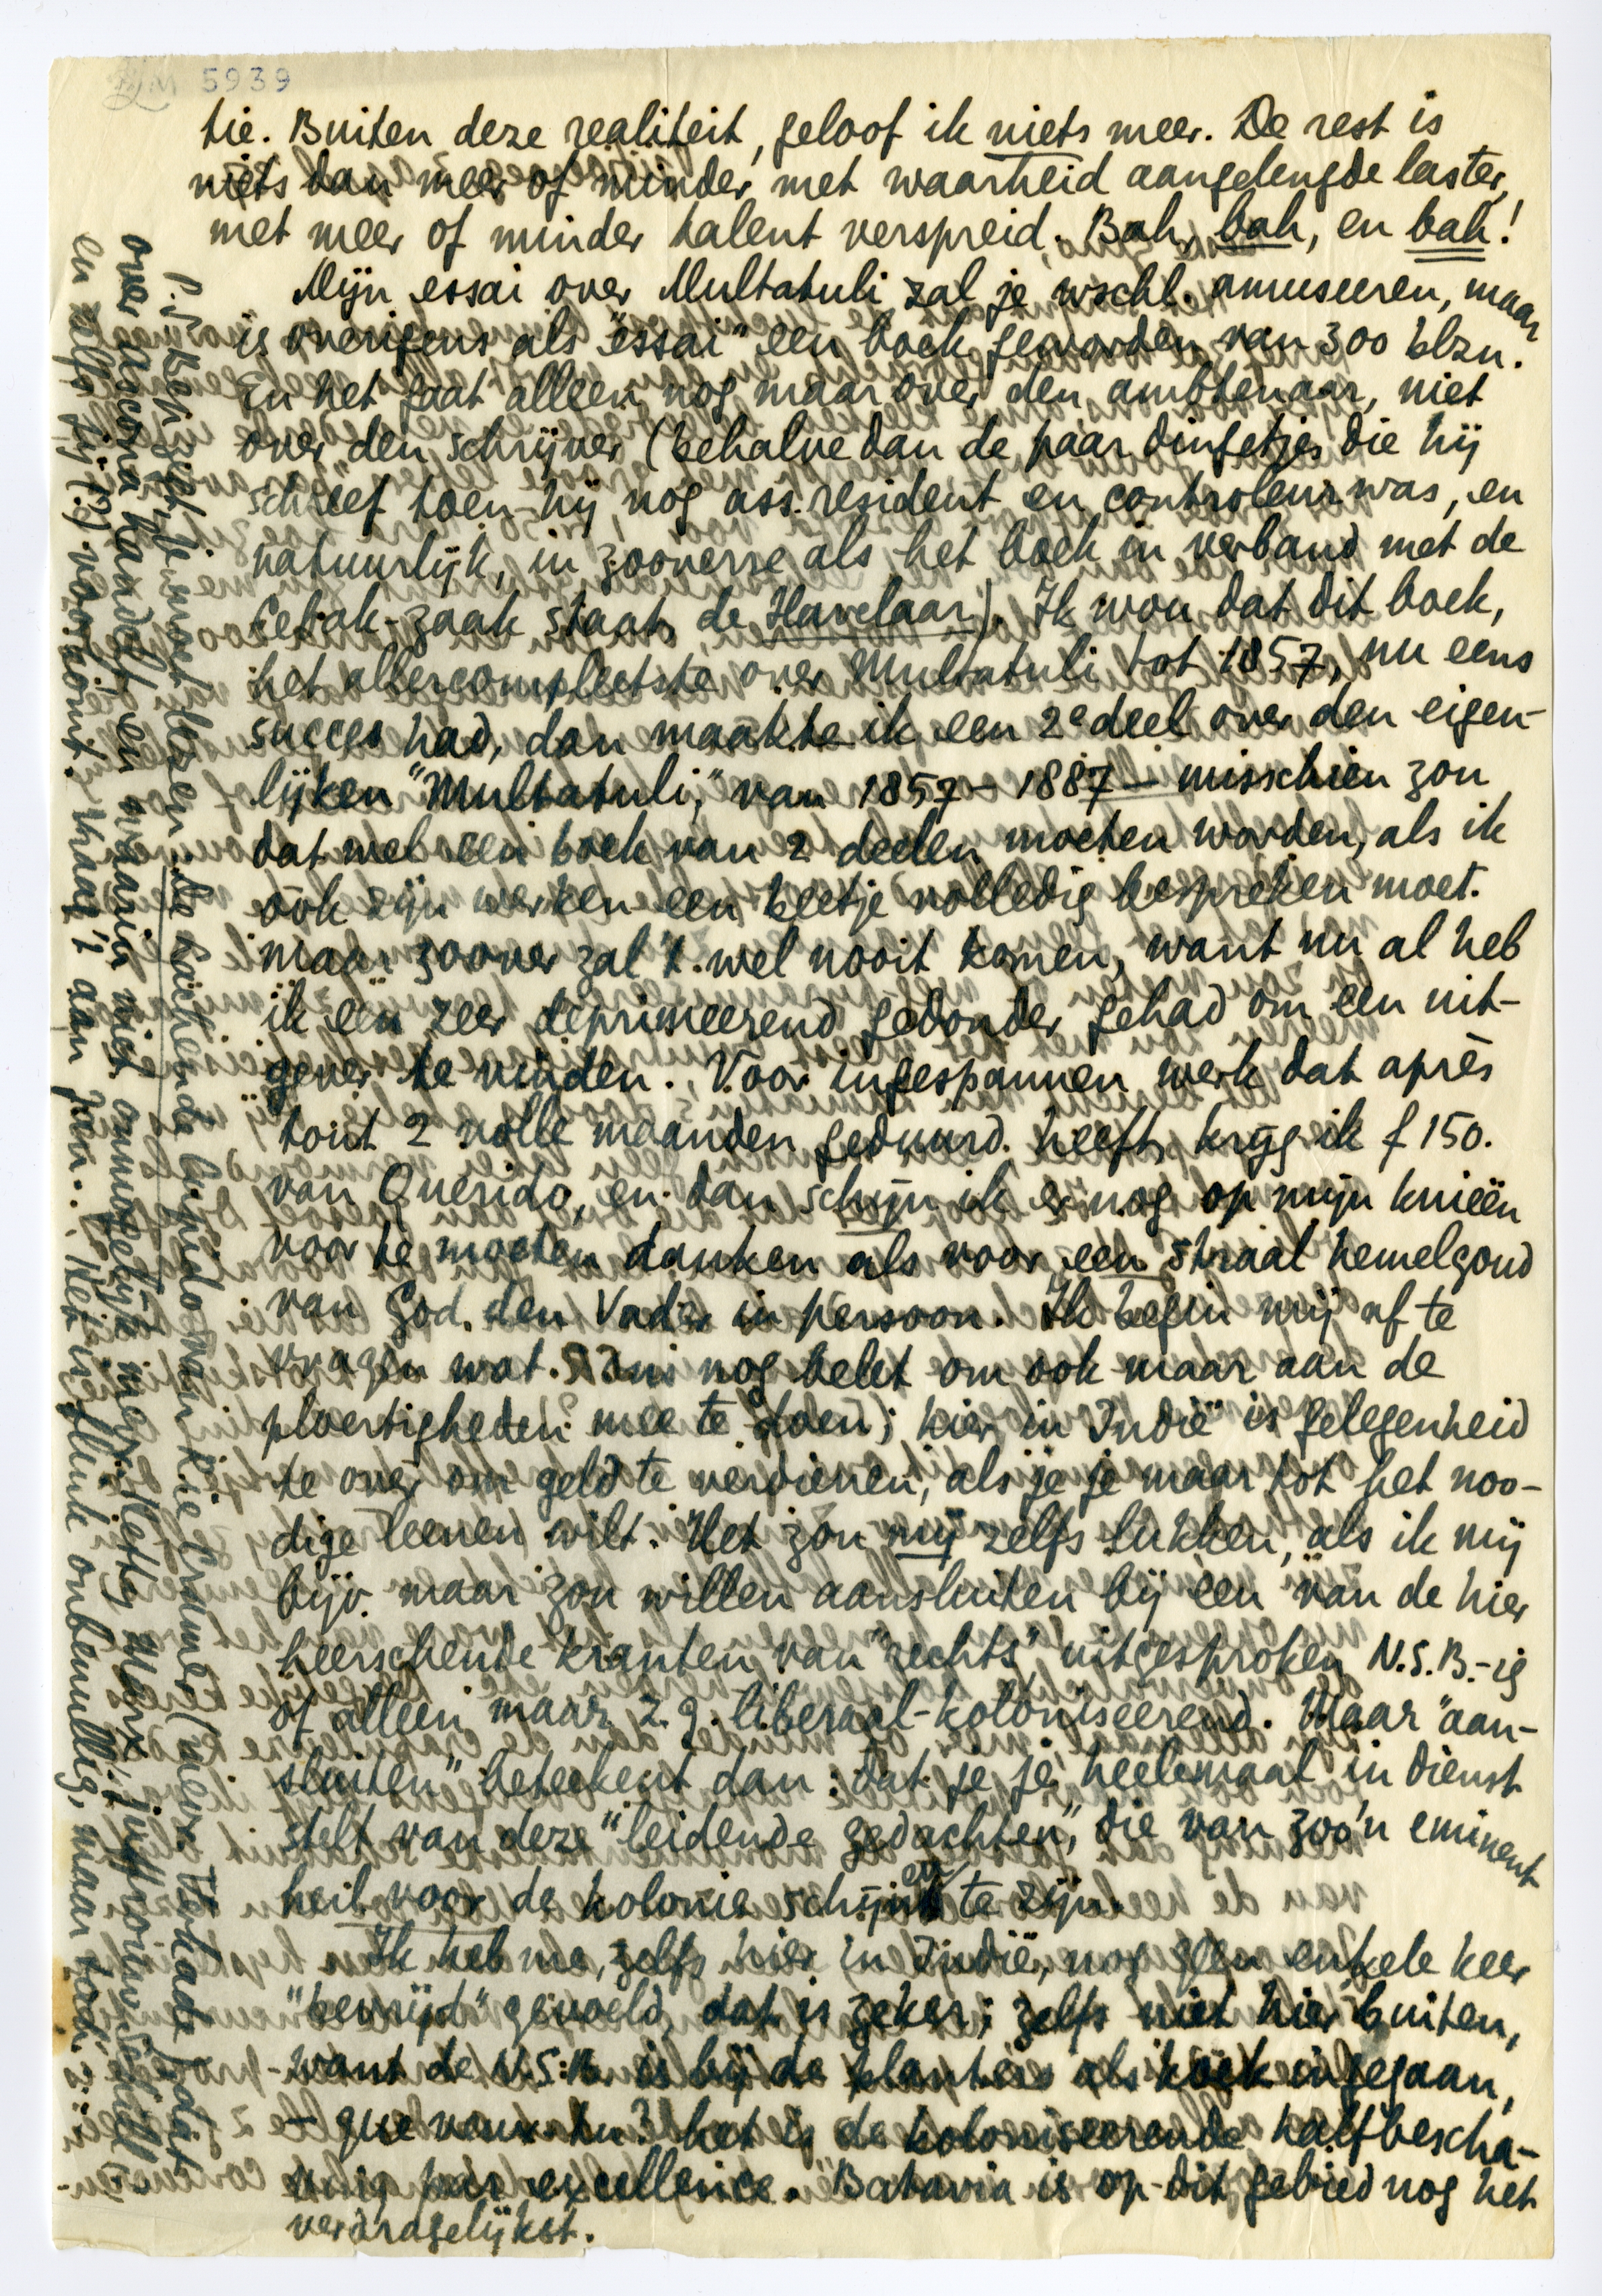 5939
tie. Buiten deze realiteit, geloof ik niets meer. De rest is
niets dan meer of minder met waarheid aangelengde laster,
met meer of minder talent verspreid. Bah, bah, en bah!
Mijn essai over Multatuli zal je wschl. amuseeren, maar
is overigens als "essai" een boek geworden van 300 blzn.
En het gaat alleen nog maar over den ambtenaar, niet
over den schrijver (behalve dan de paar dingetjes die hij
schreef toen hij nog ass. resident en controleur was, en
natuurlijk, in zooverre als het boek in verband met de
Lebak-zaak staat, de Havelaar). Ik wou dat dit boek,
het allercompleetste over Multatuli tot 1857, nu eens
succes had, dan maakte ik een 2e deel over den eigen-
lijken "Multatuli," van 1857 - 1887 - misschien zou
dat wel een boek van 2 deelen moeten worden, als ik
óók zijn werken een beetje volledig bespreken moet.
Maar zoover zal 't wel nooit komen, want nu al heb
ik een zeer deprimeerend gedonder gehad om een uit-
gever te vinden. Voor ingespannen werk dat après
tout 2 volle maanden geduurd heeft, krijg ik f 150.
van Querido, en dan schijn ik er nog op mijn knieën
voor te moeten danken als voor een straal hemelgoud
van God den Vader in persoon. Ik begin mij af te
vragen wat Jani nog belet om ook maar aan de
ploertigheden mee te doen; hier in Indië is gelegenheid
te over om geld te verdienen, als je je maar tot het noo-
dige leenen wilt. Het zou mij zelfs lukken, als ik mij
bijv. maar zou willen aansluiten bij een van de hier
heerschende kranten van "rechts", uitgesproken N.S.B.-ig
of alleen maar z.g. liberaal-koloniseerend. Maar "aan-
sluiten" beteekent dan: dat je je heelemaal in dienst
stelt van deze "leidende gedachten", die van zoo'n eminent
heil voor de kolonie schijnen te zijn.
Ik heb me, zelfs hier in Indië, nog geen enkele keer
"bevrijd" gevoeld, dat is zeker; zelfs niet hier buiten,
want de N.S.B. is bij de planters als koek ingegaan,
- que veux-tu? het is de koloniseerende halfbescha-
ving par excellence. Batavia is op dit gebied nog het
verdragelijkst.
P.S. Eén ding je moet lezen: De Lachende Guido van Rie Cramer (mevr. Verkade) dat
over Ascona handelt en waarin niet onmogelijk mevr. Hetty Marx, juffrouw
en zelfs jij (?) voorkomt. Vraag 't aan Jan... Het is flink onbenullig, maar toch..